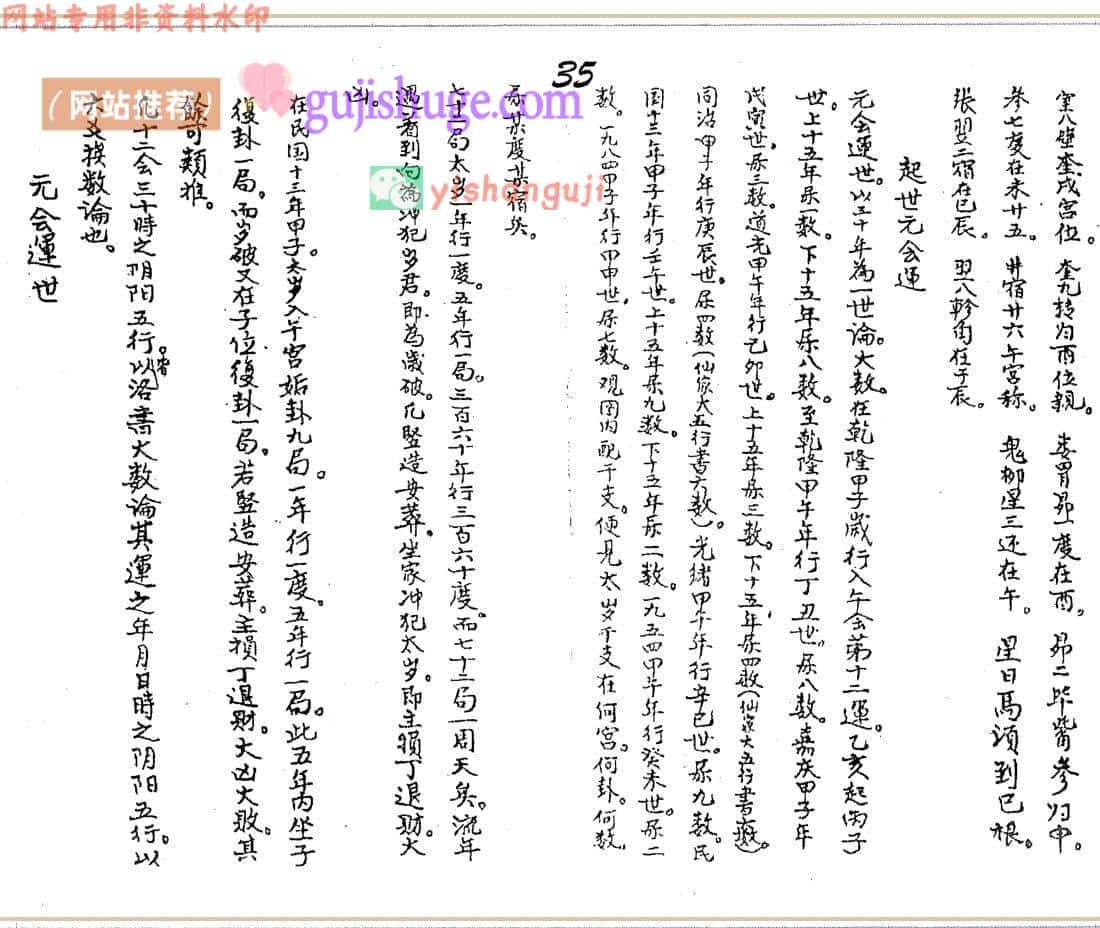 网站专用非资料水印
35
（网站推荐）
gujishuge.com
yishanguji
室八壁奎戌宫位。奎九转为酉位親。娄胃昴一度在酉，昴二毕觜参归申。
参七度在未廿五。井宿廿六午宫称。鬼柳星三还在午。星日馬須到巳
張翌二宿在巳辰。翌八軫角在于辰。
起世元会運
元会運世。以三十年為一世論。大数在乾隆甲子歲行入午会第十二運。乙亥起丙子
世。上十五年屬一数。下十五年屬八数。至乾隆甲午年行丁丑世。屬八数。嘉庆甲子年
戊寅世。屬三数。道光甲午年行己卯世。上十五年屬三数。下十五年屬四数（仙家大五行書
同治甲子年行庚辰世。屬四数（仙家大五行書六数）光绪甲午年行辛巳世。屬九数。民
国十三年甲子年行壬午世。上十五年屬九数。下十五年屬二数。一九五四甲午年行癸未世。屬二
数。一九八四甲子年行甲申世。屬七数。观图内配干支。便見太岁干支在何宫。何卦。何数，
屬某度某宿矣。
七十二局太岁一年行一度。五年行一局。三百六十年行三百六十度。而七十二局一周天矣。流年
遇着到向為冲犯岁君。即為歲破。凡竖造安葬。坐家冲犯太岁。即主損丁退财。大
凶。
在民国十三年甲子。太岁入午宫姤卦九局。一年行一度。五年行一局。此五年内坐子
復卦一局。而岁破又在子位復卦一局。若竖造安葬。主損丁退财。大凶大败。其
餘可類推。
凡十二会三十時之阴阳五行。以洛書大数論其運之年月日時之阴阳五行。以
六爻挨数論也。
元会運世